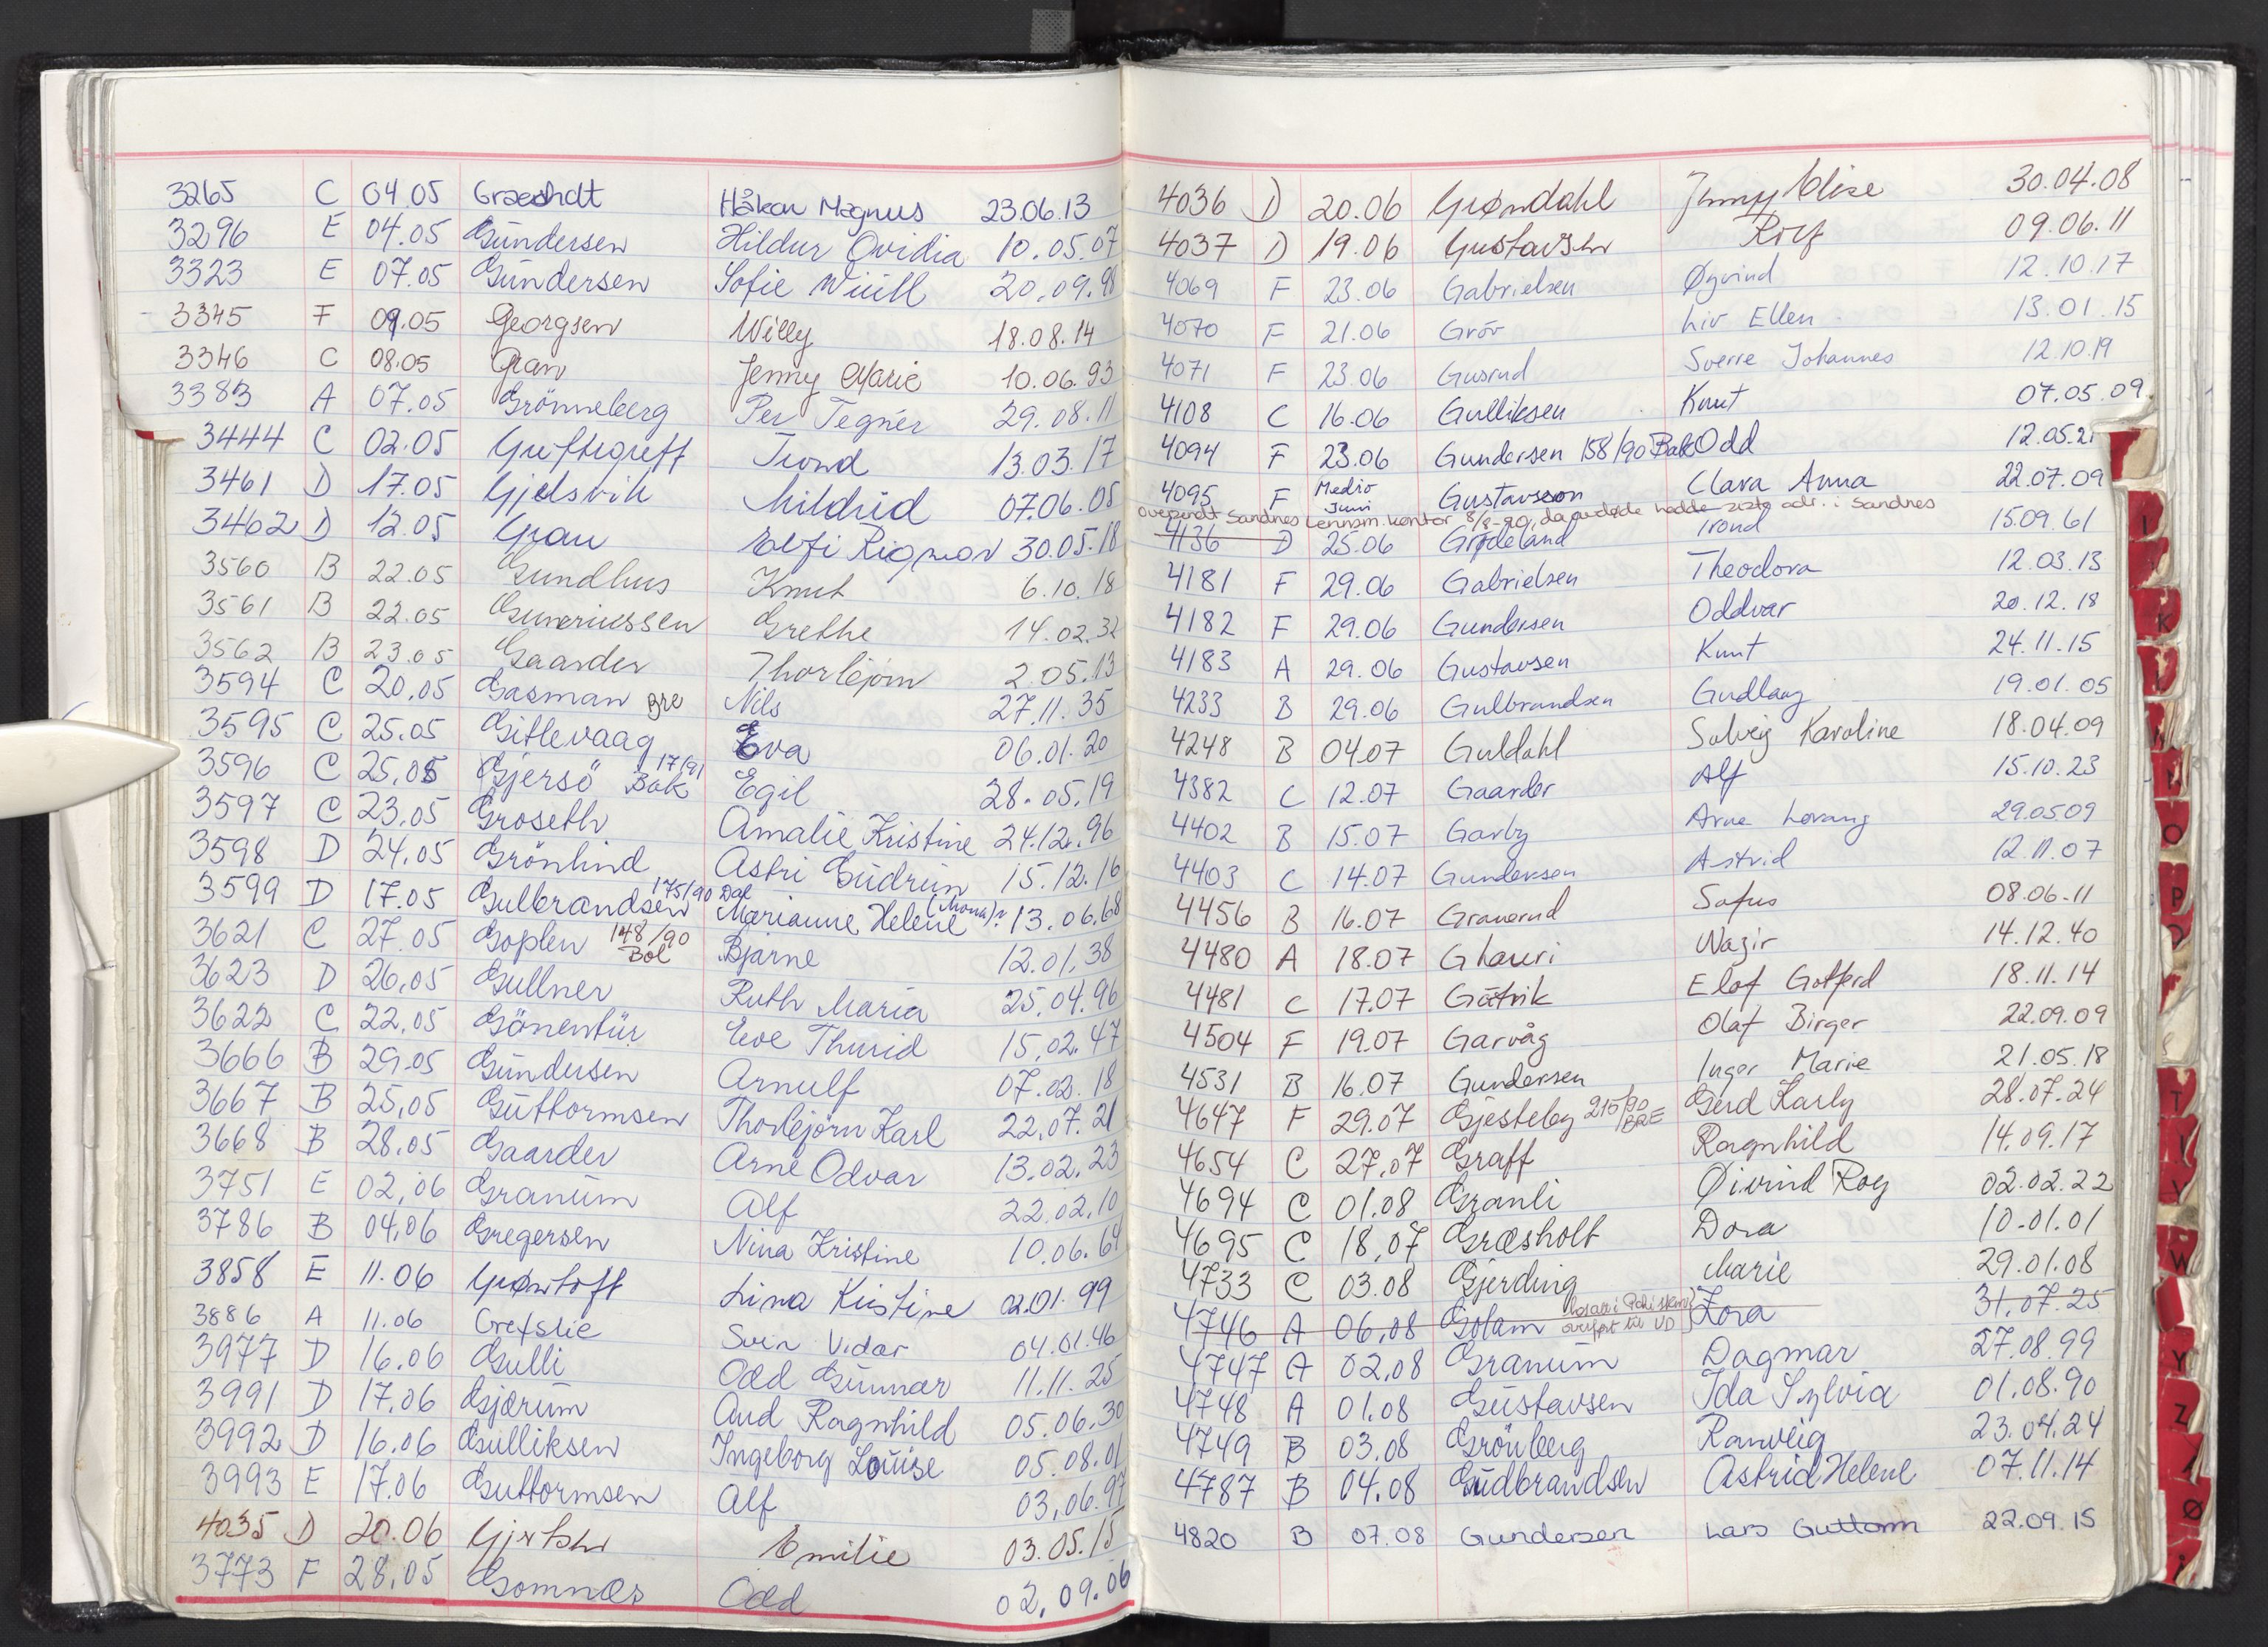 3265 C 04.05 Graeshdt Håkon Magnus 23.06.13
3296 E 04.05 Gundersen Hildur Ovidia 10.05.07
3323 E 07.05 Gundersen Sofie 20.09.98
3345 F 09.05 Georgsen Willy 18.08.14
3346 C 08.05 Gran Jenny Marie 10.06.93
3383 A 07.05 Grönneberg Per Tegnér 29.08.11
3444 C 02.05 Trond 13.03.17
3461 D 17.05 Gjelsvik Mildrid 07.06.05
3462 D 12.05 Grau Elfi Rigmor 30.05.18
3560 B 22.05 Gundhus Knut 6.10.18
3561 B 22.05 Guneriussen Grethe 14.02.32
3562 B 23.05 Gaarder Thorbjørn 2.05.13
3594 C 20.05 Gasman gre Nils 27.11.35
3595 C 25.05 Gitlevaag Eva 06.01.20
3596 C 25.05 Gjersö 17/91 Bak Egil 28.05.19
3597 C 23.05 Groseth Amalie Kristine 24.12.96
3598 D 24.05 Grönlind Astri Gudrun 15.12.16
3599 D 17.05 Gulbrandsen 175/90 Dal Marianne Helene (Mona) 13.06.68
3621 C 27.05 Goplen 148/90 Bol Bjarne 12.01.38
3623 D 26.05 Gullner Ruth Maria 25.04.96
3622 C 22.05 Gönentür Eve Thurid 15.02.47
3666 B 29.05 Gundersen Arnulf 07.02.18
3667 B 25.05 Guttormsen Thorbjørn Karl 22.07.21
3668 B 28.05 Gaarder Arne Odvar 13.02.23
3751 E 02.06 Granum Alf 22.02.10
3786 B 04.06 Gregersen Nina Kristine 10.06.64
3858 E 11.06 Grøntoft Lina Kristine 02.01.99
3886 A 11.06 Grefslie Svein Vidar 04.01.46
3977 D 16.06 Gulli Odd Gunnar 11.11.25
3991 D 17.06 Gjærum Aud Ragnhild 05.06.30
3992 D 16.06 Gulliksen Ingeborg Louise 05.08.01
3993 E 17.06 Guttormsen Alf 03.06.97
4035 D 20.06 Gjertsen Emilie 03.05.15
3773 F 28.05 Gomnæs Odd 02.09.06
4036 D 20.06 Grøndahl Jenny Elise 30.04.08
4037 D 19.06 Gustavsen Rolf 09.06.11
4069 F 23.06 Gabrielsen Øyvind 12.10.17
4070 F 21.06 Gröv Liv Ellen 13.01.15
4071 F 23.06 Gusrud Sverre Johannes 12.10.19
4108 C 16.06 Gulliksen Knut 07.05.09
4094 F 23.06 Gundersen 158/90 Bak Odd 12.05.21
4095 F Medio Juni Gustavsson Clara Anna 22.07.09
oversendt Sandnes Lennsm.kontor 8/8-90, da avdøde hadde siste adr. i Sandnes
4136 D 25.06 Grødeland Trond 15.09.61
4181 F 29.06 Gabrielsen Theodora 12.03.13
4182 F 29.06 Gundersen Oddvar 20.12.18
4183 A 29.06 Gustavsen Knut 24.11.15
4233 B 29.06 Gulbrandsen Gudlaug 19.01.05
4248 B 04.07 Guldahl Solveig Karoline 18.04.09
4382 C 12.07 Gaarder Alf 15.10.23
4402 B 15.07 Garby Arne Lorang 29.05 09
4403 C 14.07 Gundersen Astrid 12.11.07
4456 B 16.07 Granerud Sofus 08.06.11
4480 A 18.07 Ghauri Nazir 14.12.40
4481 C 17.07 Gätvik Elof Gotferd 18.11.14
4504 F 19.07 Garvåg Olaf Birger 22.09.09
4531 B 16.07 Gundersen Inger Marie 21.05.18
4647 F 29.07 Gjesteby 215/90 BRE Gerd Karly 28.07.24
4654 C 27.07 Graff Ragnhild 14.09.17
4694 C 01.08 Granli Øivind Roy 02.02.22
4695 C 18.07 Græsholt Dora 10.01.01
4733 C 03.08 Gjerding Marie 29.01.08
4746 A 06.08 Golam bosatt i Pakistan overført til UD Zora 31.07.25
4747 A 02.08 Granum Dagmar 27.08.99
4748 A 01.08 Gustavsen Ida Sylvia 01.08.90
4749 B 03.08 Grönberg Ranveig 23.04.24
4787 B 04.08 Gudbrandsen Astrid Helene 07.11.14
4820 B 07.08 Gundersen Lars Guttorm 22.09.15
I
K
N
O
P
T
Y
W
Y
Z
Ø